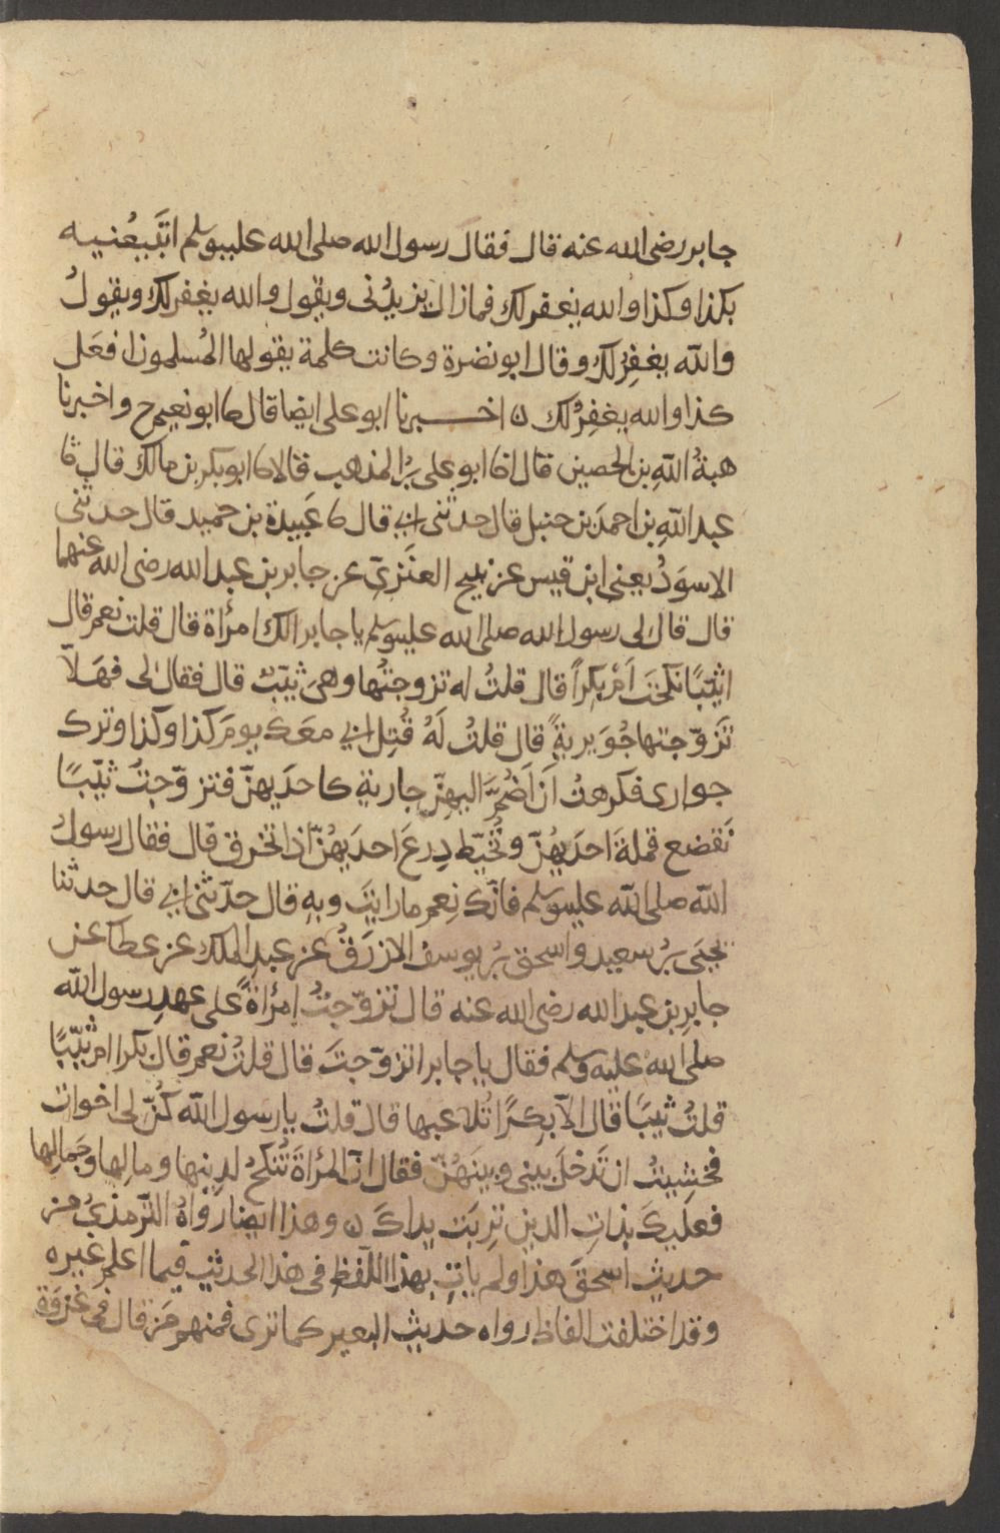 جابر رضى الله عنه قال فقال رسول الله صلى الله عليه وسلم اتبيعنيه
بكذا وكذا والله يغفر لك فما زال يزيدنى ويقول والله يغفر لك ويقولُ
والله يغفِرُ لك وقال ابو نضرة وكانت كلمة يقولها المُسلمون افعَل
كذا والله يغفِرُ لك ن اخبرنا ابو على ايضا قال ثا ابو نعيم ح واخبرنا
هبةُ اللهِ بن الحصين قال انا ابو على بنُ المذهب قالا ثا ابو بكر بن مالك قال ثا
عبد اللهِ بن احمدَ بن حنبل قال حدثنى ابي قال ثا عَبيدة بن حميد قال حدثنى
الاسوَدُ يعنى ابن قيس عن نبيح العنَزىّ عن جابر بن عبد الله رضى الله عنهما
قال قال لى رسول الله صلى الله عليه وسلم يا جابر الك امرأة قال قلت نعم قال
اثيّبًا نكحتَ اَمْ بكراً قال قلتُ له تزوجتُها وهىَ ثيّبٌ قال فقال لى فهَلّا
تزَوّجتها جُوَيريةً قال قلتُ لَهُ قُتِل ابي معَك يومَ كذا وكذا وترك
جوارى فكرهتُ اَن اَضُمَّ اليهِنّ جارية كاحدَيهنّ فتزوّجتُ ثيّبًا
تَقصَع قملةَ احدَيهُنّ وتُخيّط دِرعَ احدَيهُنّ اذا تخرق قال فقال رسولُ
اللهِ صلى الله عليه وسلم فانّك نِعم ما رايتَ وبهِ قال حدّثنى ابي قال حدثنا
يحيَى بنُ سعيد واسحق بنُ يوسف الازرَقُ عن عبدِ الملك عن عطا عن
جابرِ بن عبد الله رضى الله عنه قال تزوّجتُ إمرأةً على عهدِ رسول الله
صلى الله عليه وسلم فقال يا جابر اتزوّجتَ قال قلتُ نعم قال بكرا ام ثيّبًا
قلتُ ثيبًا قال الاّ بِكرًا تُلاعبها قال قلتُ يا رسول الله كُنّ لى اخوات
فخشِيتُ ان تَدخلَ بينى وبينَهُنّ فقال انّ المرأةَ تُنكحُ لدِينها ومالِها وجَمالِها
فعلَيكَ بذاتِ الدين ترِبَت يداكَ ن وهذا ايضا رواهُ الترمذيُ من
حديث اسحقَ هذا ولم ياتِ بهذا اللفظِ فى هذا الحديثِ فيما اعلم غيره
وقد اختلفت الفاظ رواه حديث البعير كما ترى فمنهم مَن قال فى غزوَة